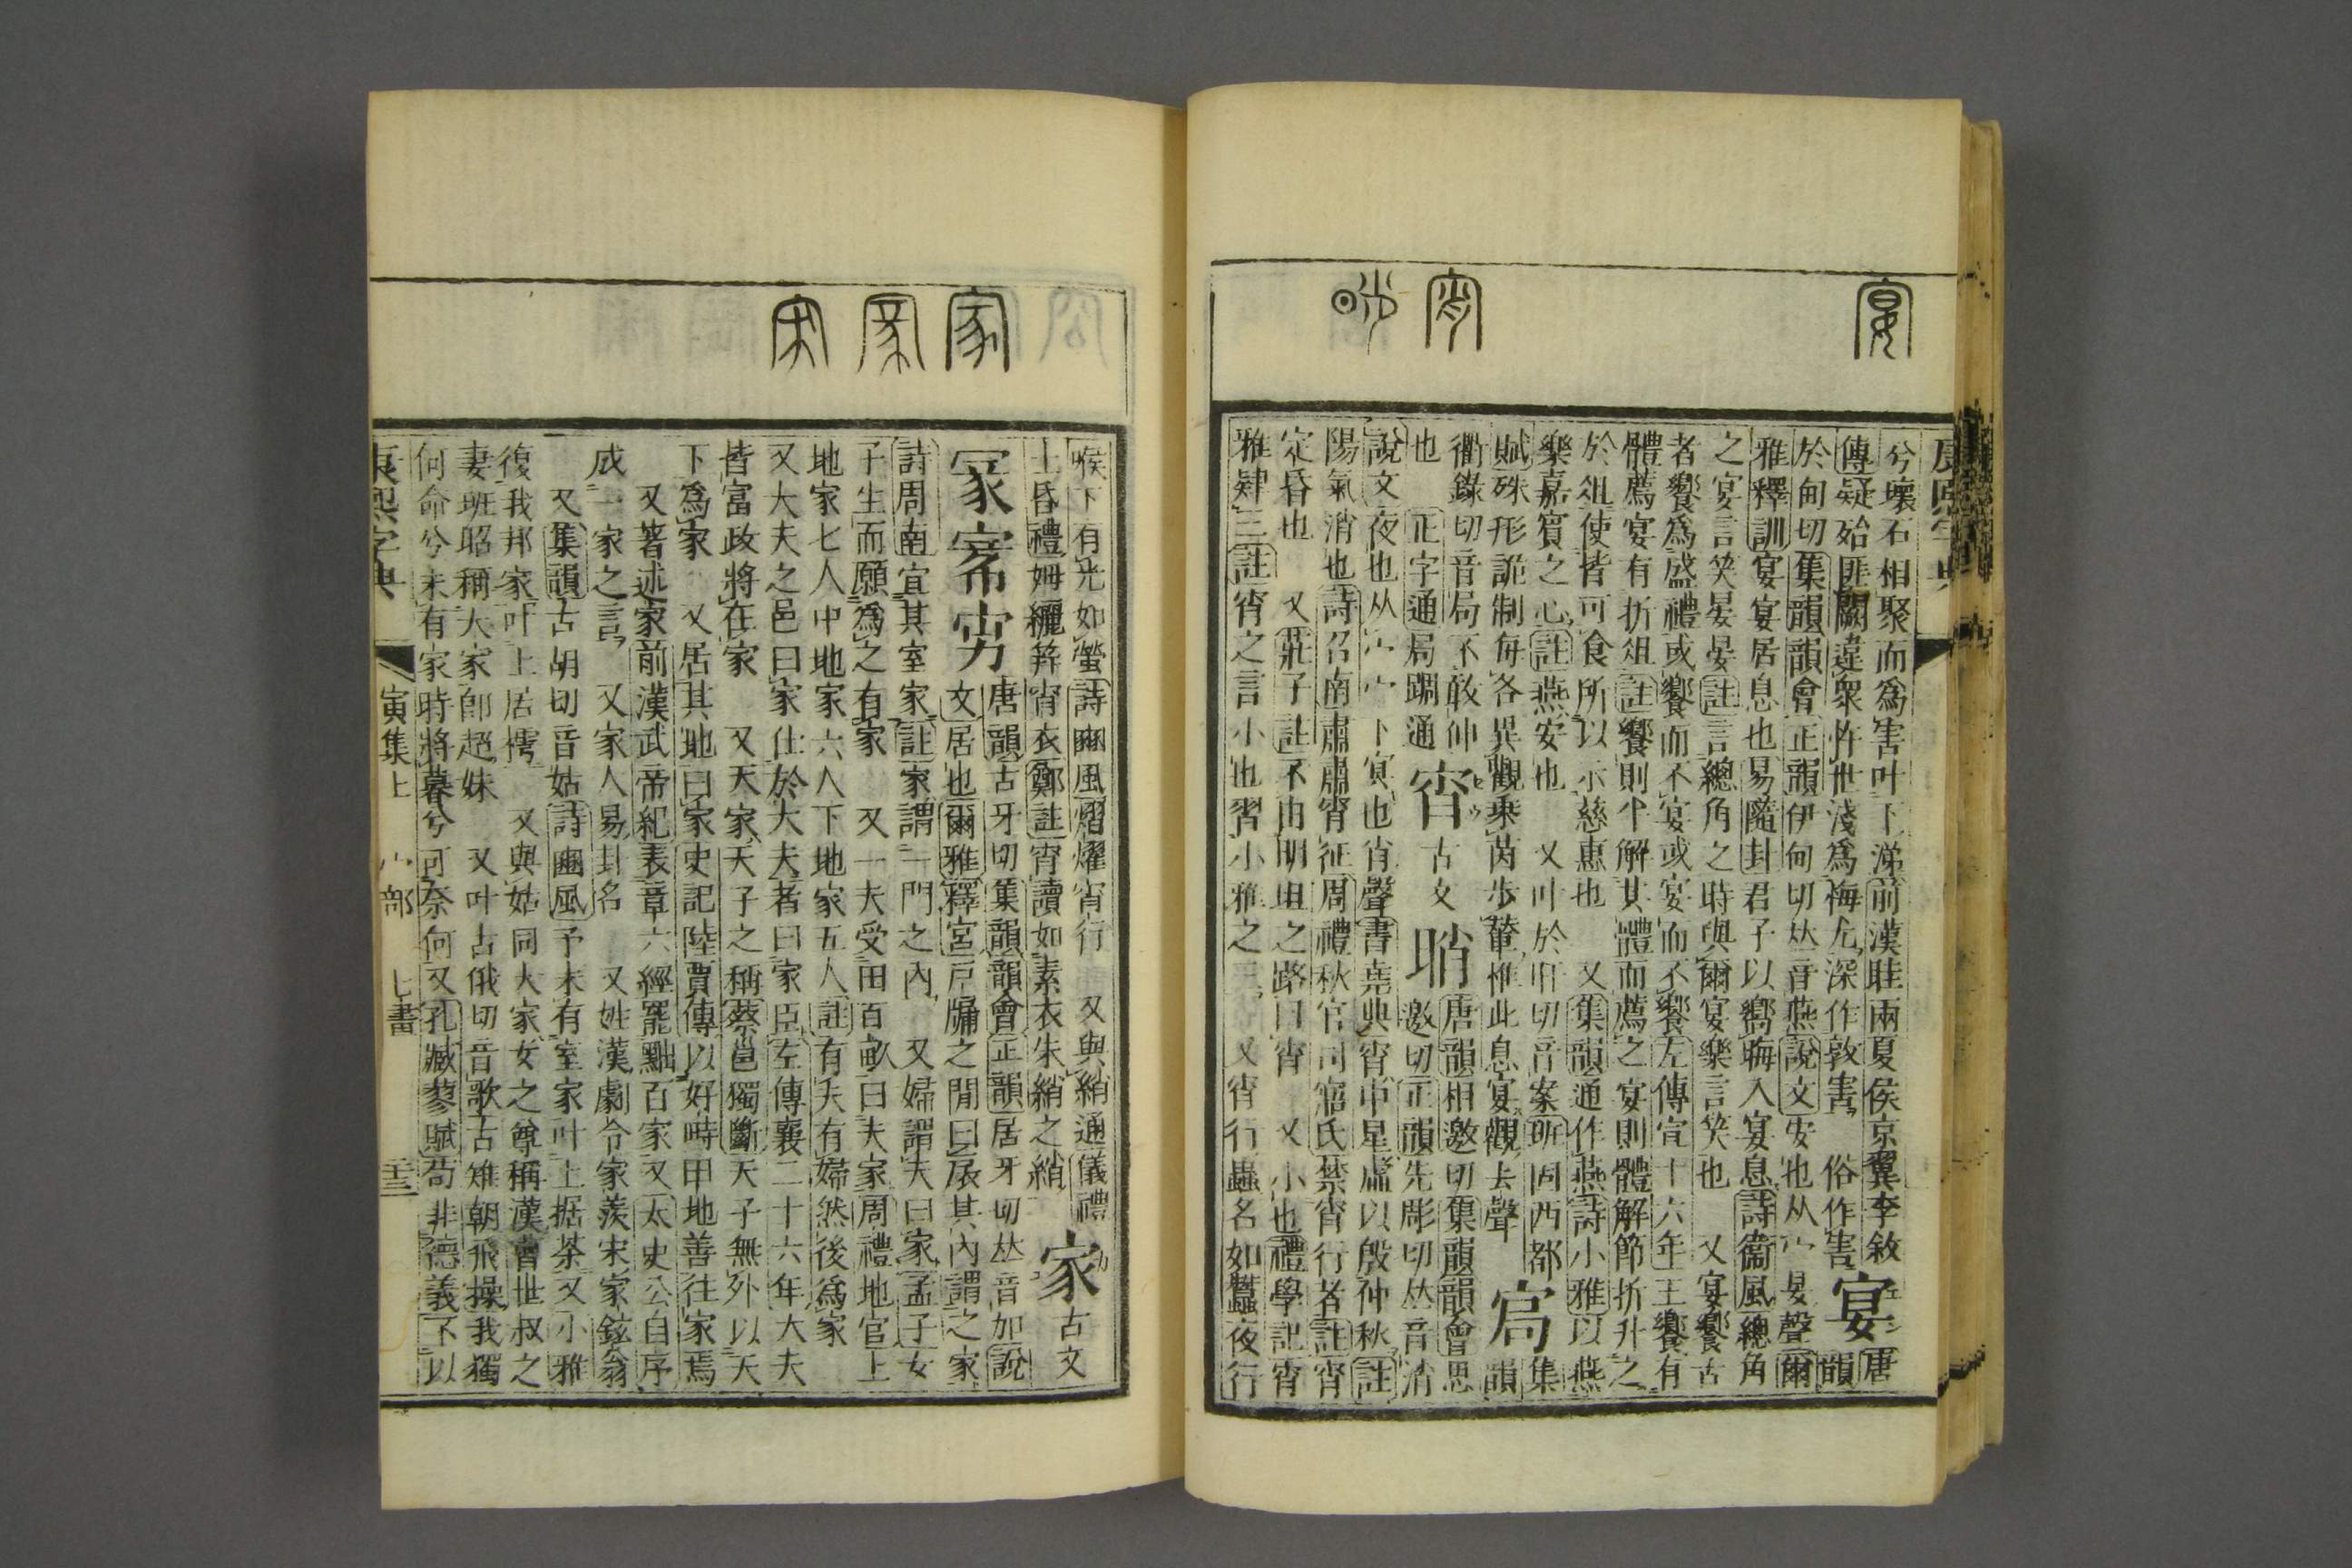 康熙字典
兮壞石相聚而爲害叶下涕前漢眭兩夏侯京翼李敘
傳疑殆匪闕違衆忤世淺爲梅尤深作敦害 俗作害 宴 唐韻
於甸切集韻韻會正韻伊甸切𠀤音燕說文安也从宀妟聲爾
雅釋訓宴宴居息也易隨封君子以嚮晦入宴息詩衞風總角
之宴言笑晏晏註言總角之時與爾宴樂言笑也 又宴饗古
者饗爲盛禮或饗而不宴或宴而不饗左傳宣十六年王饗有
體薦宴有折俎註饗則半解其體而薦之宴則體解節折升之
於俎使皆可食所以示慈惠也 又集韻通作燕詩小雅以燕
樂嘉賓之心註燕安也 又叶於旰切音案班固西都
賦殊形詭制每各異觀乗茵步輦惟此息宴觀去聲 㝓 集韻
衢錄切音局不敢伸
也 正字通局跼通 宵 古文 㫾 唐韻相邀切集韻韻會思
邀切正韻先彫切𠀤音消
說文夜也从宀宀下冥也肖聲書堯典宵中星虛以殷仲秋註
陽氣消也詩召南肅肅宵征周禮秋官司寤氏禁宵行者註宵
定昏也 又莊子註不由明坦之路曰宵 又小也禮學記宵
雅肄三註宵之言小也習小雅之三 又宵行蟲名如蠶夜行
喉下有光如螢詩豳風熠燿宵行 又與綃通儀禮
士昏禮姆纚筓宵衣鄭註宵讀如素衣朱綃之綃 家 古文
冡𡩅𡧚 唐韻古牙切集韻韻會正韻居牙切𠀤音加說
文居也爾雅釋宮戸牖之閒曰扆其內謂之家
詩周南宜其室家註家謂一門之內 又婦謂夫曰家孟子女
子生而願爲之有家 又一夫受田百畝曰夫家周禮地官上
地家七人中地家六人下地家五人註有夫有婦然後爲家
又大夫之邑曰家仕於大夫者曰家臣左傳襄二十六年大夫
皆富政將在家 又天家天子之稱蔡邕獨斷天子無外以天
下爲家 又居其地曰家史記陸賈傳以好畤田地善往家焉
又著述家前漢武帝紀表章六經罷黜百家又太史公自序
成一家之言 又家人易封名 又姓漢劇令家羨宋家鉉翁
又集韻古胡切音姑詩豳風予未有室家叶上据荼又小雅
復我邦家叶上居樗 又與姑同大家女之尊稱漢曹世叔之
妻班昭稱大家卽超妹 又叶古俄切音歌古雉朝飛操我獨
何命兮未有家時將暮兮可奈何 又孔臧蓼賦苟非德義不以
康熙字典 寅集上 宀部 七畫